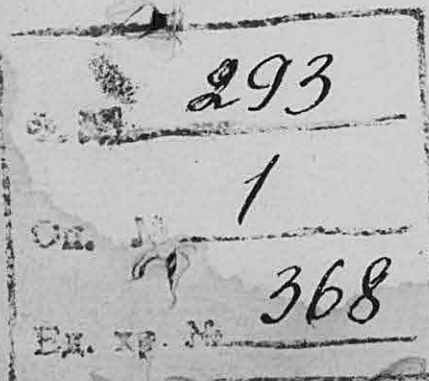 Ф. № 293
Оп. № 1
Ед. хр. № 368